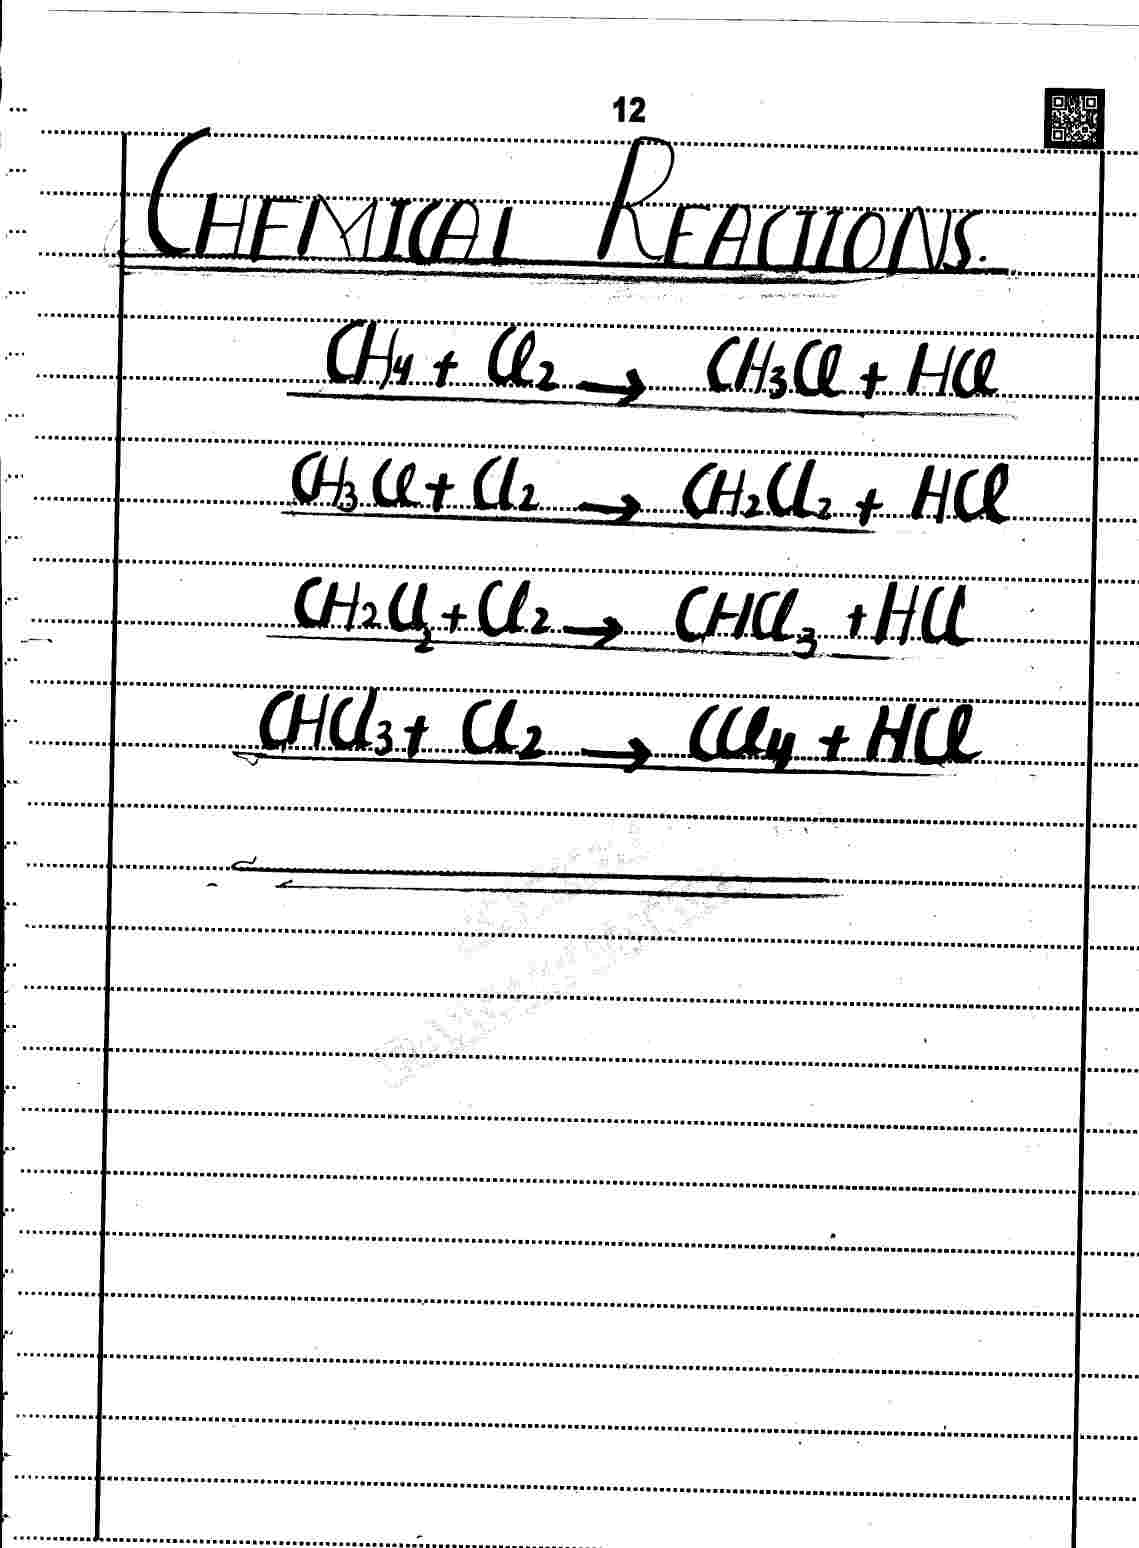 12
CHEMICAL REACTIONS.
CH4 + Cl2 → CH3Cl + HCl
CH3Cl + Cl2 → CH2Cl2 + HCl
CH2Cl2 + Cl2 → CHCl3 + HCl
CHCl3 + Cl2 → CCl4 + HCl